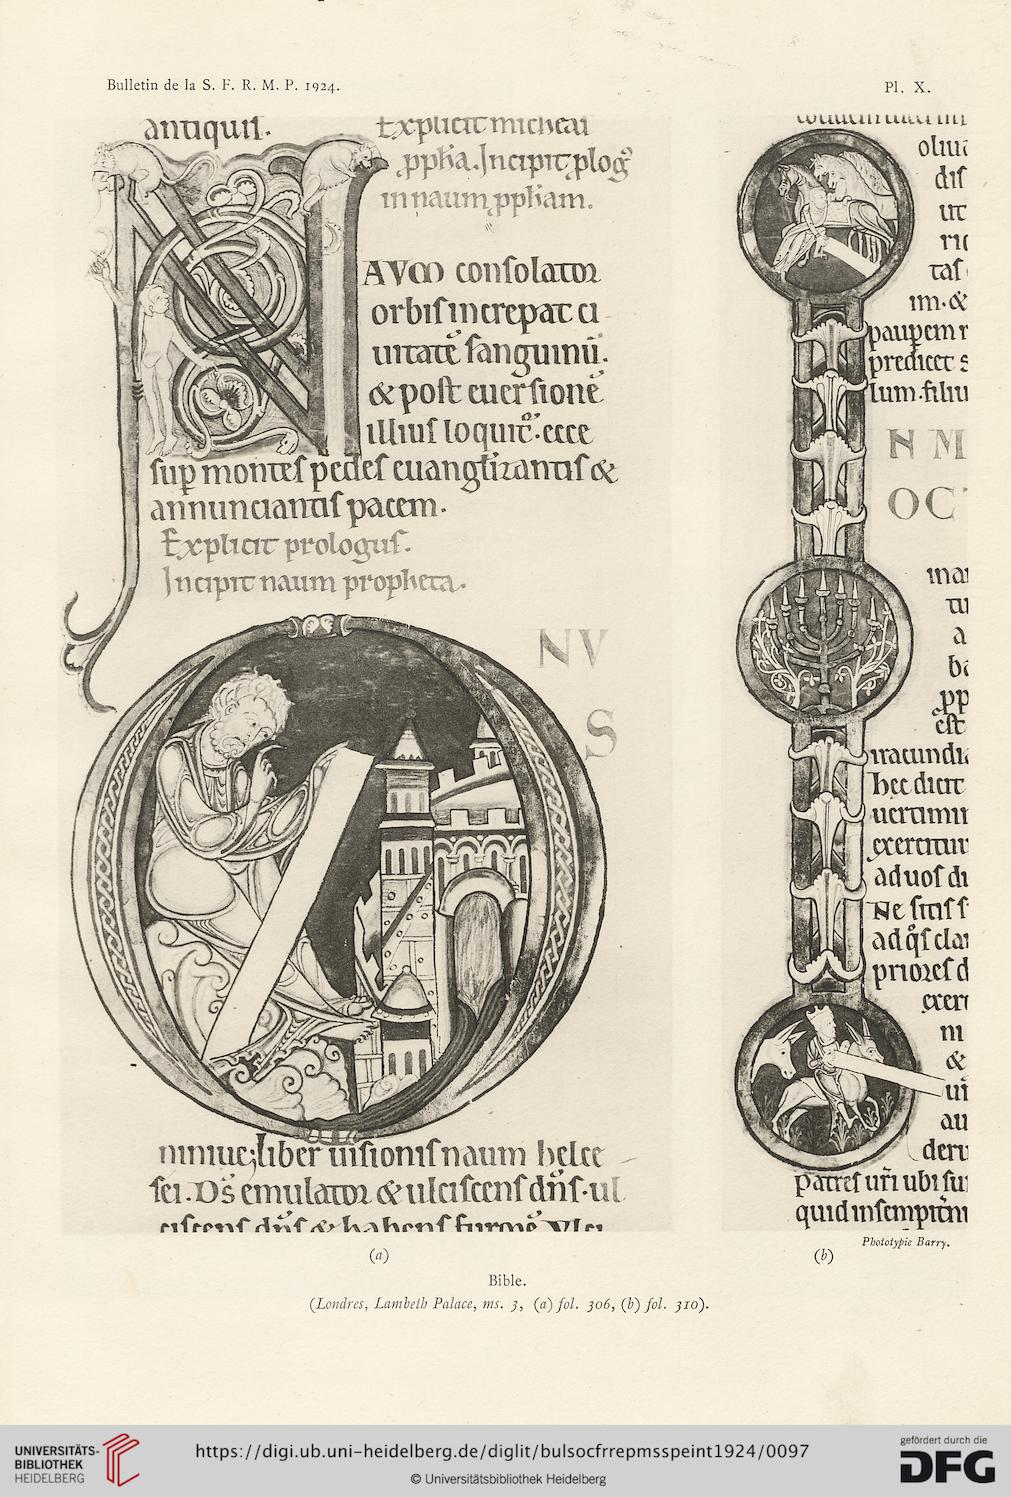 Bulletin de la S. F. R. M. P. 1924.
Pl. X.
antiquis.
Explicit micheas
ppħa. Incipit plog
in naum ppħam.
NAVM consolator
orbis increpat ci
uitatē sanguinū.
& post euersionē
illius loquit̄. ecce
sup montes pedes euangl̄izantis &
annunciantis pacem.
Explicit prologus.
Incipit naum propheta.
ONV
S
niniue; liber uisionis naum helce
sei. Ds̄ emulator & ulciscens dn̄s. ul
ciscens dn̄s & habens furorē
oliua
dis
ut
tas
im. &
paupem
predicet
lum. filiu
N M
OC
ba
pp
est
iracundia
hec dicit
uertimi
exercituu
ad uos di
Ne sitis s
ad qs cla
priores
exer
ni
&
au
patres uri ubi su
quid in sempitn
(a)
Phototypie Barry.
(b)
Bible.
(Londres, Lambeth Palace, ms. 3, (a) fol. 306, (b) fol. 310).
UNIVERSITÄTS-
BIBLIOTHEK
HEIDELBERG
https://digi.ub.uni-heidelberg.de/diglit/bulsocfrrepmsspeint1924/0097
© Universitätsbibliothek Heidelberg
gefördert durch die
DFG